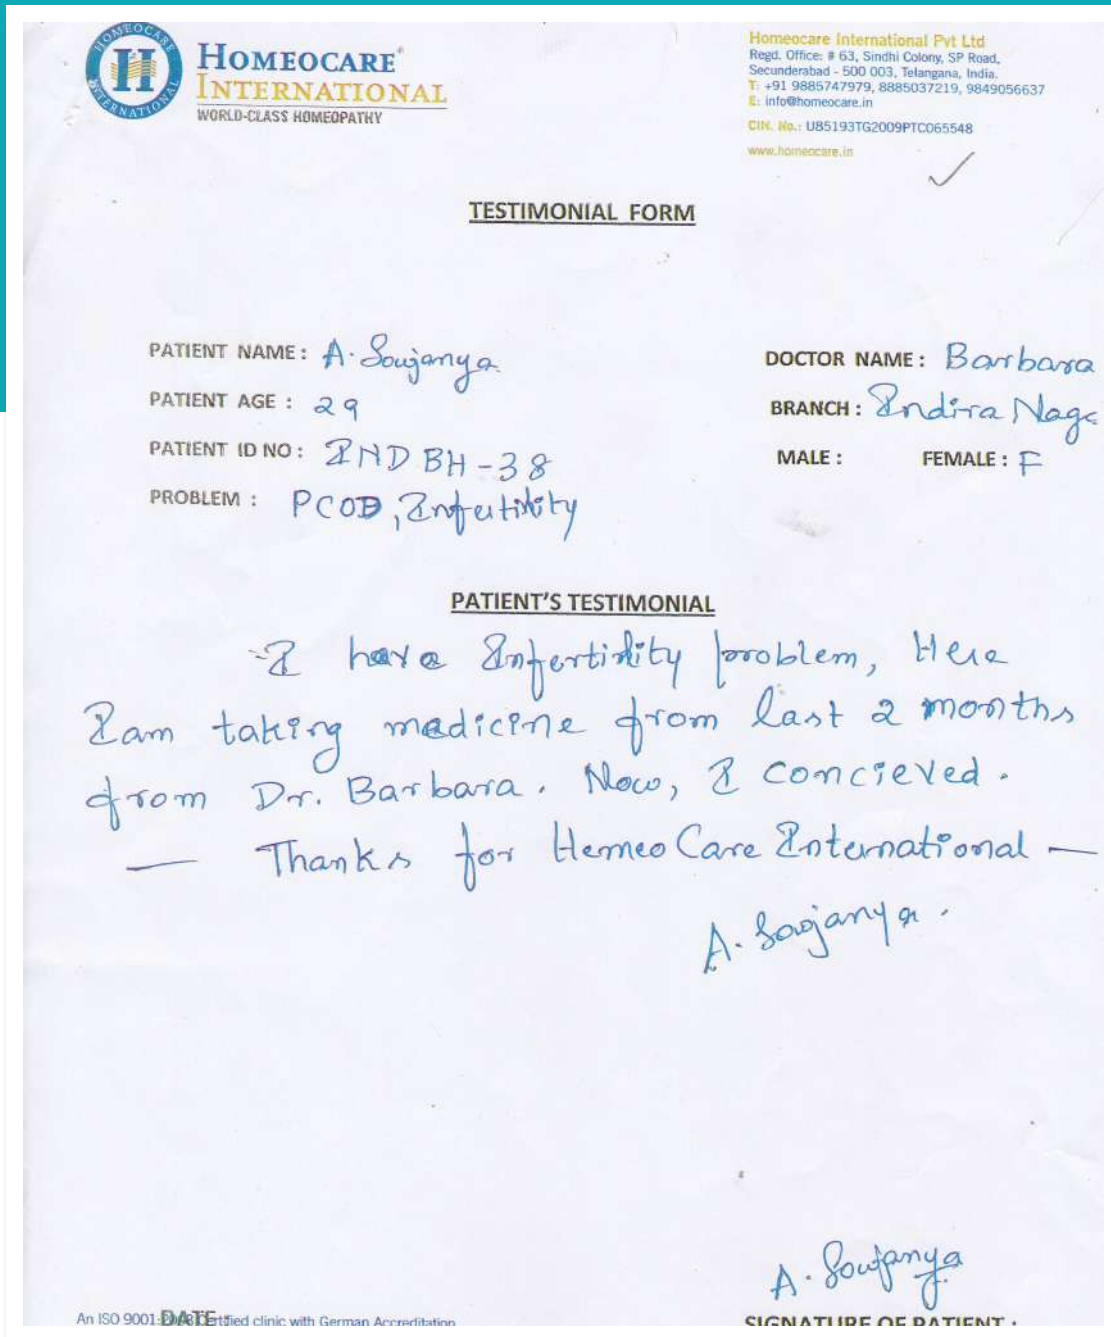 HOMEOCARE INTERNATIONAL
H
HOMEOCARE®
INTERNATIONAL
WORLD-CLASS HOMEOPATHY
Homeocare International Pvt Ltd
Regd. Office: # 63, Sindhi Colony, SP Road,
Secunderabad - 500 003, Telangana, India.
T: +91 9885747979, 8885037219, 9849056637
E: info@homeocare.in
CIN. No.: U85193TG2009PTC065548
www.homeocare.in
TESTIMONIAL FORM
PATIENT NAME: A. Soujanya
DOCTOR NAME: Barbara
PATIENT AGE : 29
BRANCH: Indira Nag
PATIENT ID NO: IND BH-38
MALE: FEMALE: F
PROBLEM : PCOD, Infertility
PATIENT'S TESTIMONIAL
I have Infertility problem, Here
I am taking medicine from last 2 months
from Dr. Barbara. Now, I concieved.
— Thanks for HomeoCare International —
A. Soujanya.
A. Soujanya
An ISO 9001:2008 Certified clinic with German Accreditation
DATE :
SIGNATURE OF PATIENT :